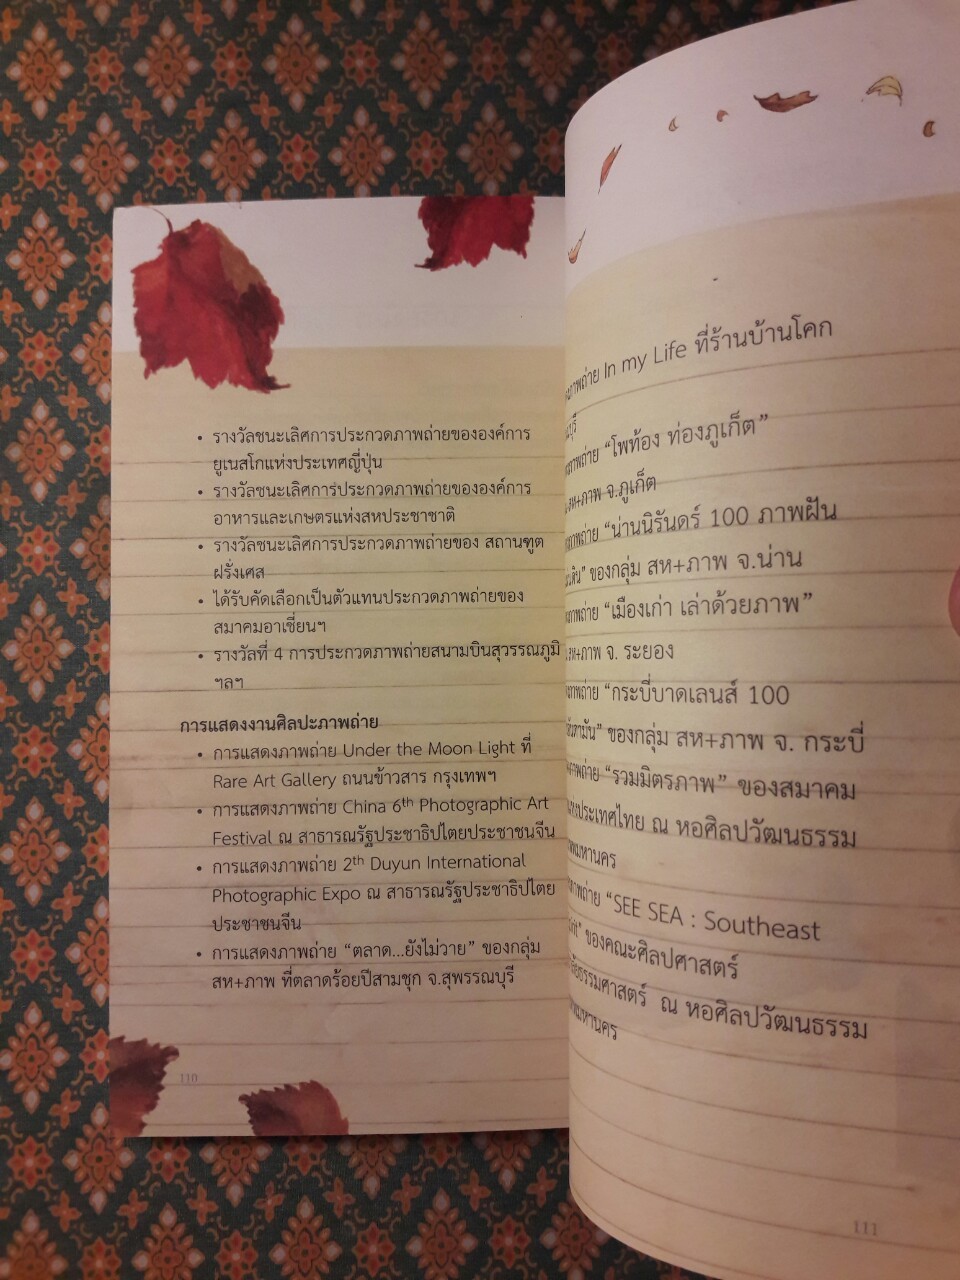 • รางวัลชนะเลิศการประกวดภาพถ่ายขององค์การ
ยูเนสโกแห่งประเทศญี่ปุ่น
• รางวัลชนะเลิศการประกวดภาพถ่ายขององค์การ
อาหารและเกษตรแห่งสหประชาชาติ
• รางวัลชนะเลิศการประกวดภาพถ่ายของ สถานฑูต
ฝรั่งเศส
• ได้รับคัดเลือกเป็นตัวแทนประกวดภาพถ่ายของ
สมาคมอาเซี่ยนฯ
• รางวัลที่ 4 การประกวดภาพถ่ายสนามบินสุวรรณภูมิ
ฯลฯ
การแสดงงานศิลปะภาพถ่าย
• การแสดงภาพถ่าย Under the Moon Light ที่
Rare Art Gallery ถนนข้าวสาร กรุงเทพฯ
• การแสดงภาพถ่าย China 6th Photographic Art
Festival ณ สาธารณรัฐประชาธิปไตยประชาชนจีน
• การแสดงภาพถ่าย 2th Duyun International
Photographic Expo ณ สาธารณรัฐประชาธิปไตย
ประชาชนจีน
• การแสดงภาพถ่าย “ตลาด...ยังไม่วาย” ของกลุ่ม
สห+ภาพ ที่ตลาดร้อยปีสามชุก จ.สุพรรณบุรี
110
ภาพถ่าย In my Life ที่ร้านบ้านโคก
ภาพถ่าย “โพท้อง ท่องภูเก็ต”
สห+ภาพ จ.ภูเก็ต
ภาพถ่าย “น่านนิรันดร์ 100 ภาพฝัน
ของกลุ่ม สห+ภาพ จ.น่าน
ภาพถ่าย “เมืองเก่า เล่าด้วยภาพ”
สห+ภาพ จ. ระยอง
ภาพถ่าย “กระบี่บาดเลนส์ 100
ของกลุ่ม สห+ภาพ จ. กระบี่
ภาพถ่าย “รวมมิตรภาพ” ของสมาคม
ประเทศไทย ณ หอศิลปวัฒนธรรม
ภาพถ่าย “SEE SEA : Southeast
ของคณะศิลปศาสตร์
ธรรมศาสตร์ ณ หอศิลปวัฒนธรรม
111